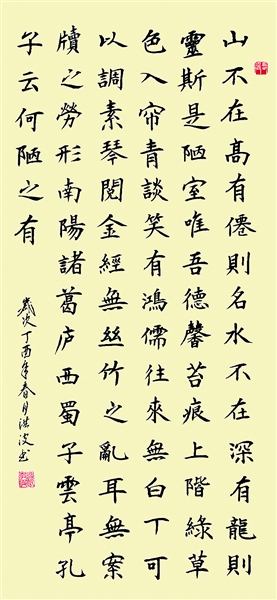 山不在高有僊則名水不在深有龍則
靈斯是陋室唯吾德馨苔痕上階綠草
色入帘青談笑有鴻儒往來無白丁可
以調素琴閱金經無絲竹之亂耳無案
牘之勞形南陽諸葛庐西蜀子雲亭孔
子云何陋之有
歲次丁酉年春月洪波书